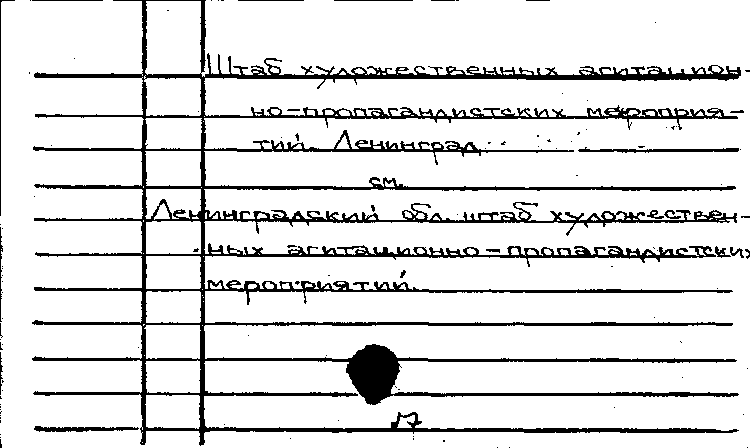 Штаб художественных агитацион-
но-пропагандистских мероприя-
тий. Ленинград
см.
Ленинградский обл. штаб художествен-
ных агитационно-пропагандистских
мероприятий.